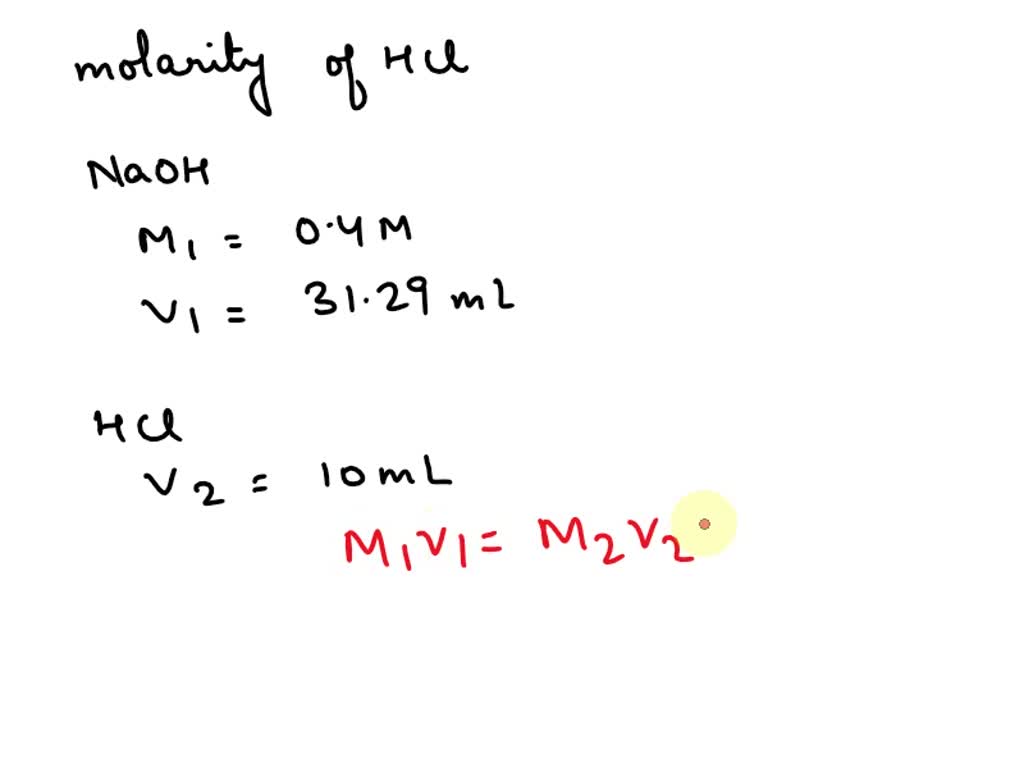 molarity of HCl
NaOH
M1 = 0.4 M
V1 = 31.29 mL
HCl
V2 = 10 mL
M1V1 = M2V2